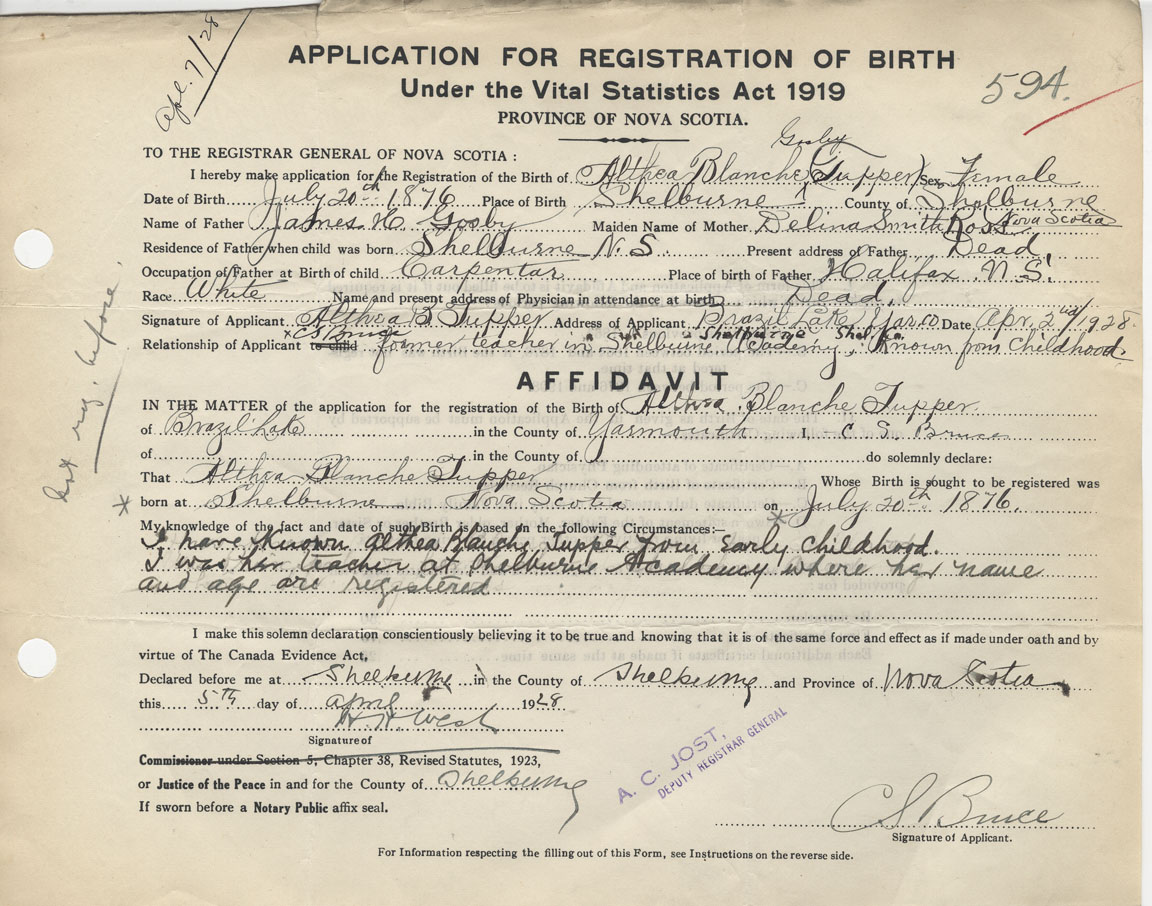 Apl. 7/28
APPLICATION FOR REGISTRATION OF BIRTH
Under the Vital Statistics Act 1919
594.
PROVINCE OF NOVA SCOTIA.
TO THE REGISTRAR GENERAL OF NOVA SCOTIA :
Gosby
I hereby make application for the Registration of the Birth of Althea Blanche (Tupper) Sex Female
Date of Birth July 20th 1876 Place of Birth Shelburne County of Shelburne
Nova Scotia
Name of Father James H Gosby Maiden Name of Mother Delina Smith Ross
Residence of Father when child was born Shelburne N.S. Present address of Father Dead
Occupation of Father at Birth of child Carpentar Place of birth of Father Halifax N.S.
Race White Name and present address of Physician in attendance at birth Dead.
Signature of Applicant Althea B Tupper Address of Applicant Brazil Lake Yar. co Date Apr. 2nd/1928.
x C S Bruce " " " Shelburne Shel. Co.
Relationship of Applicant to child former teacher in Shelburne Academy, Known from Childhood.
AFFIDAVIT
IN THE MATTER of the application for the registration of the Birth of Althea Blanche Tupper
of Brazil Lake in the County of Yarmouth I, C. S. Bruce
of in the County of do solemnly declare:
That Althea Blanche Tupper Whose Birth is sought to be registered was
born at Shelburne Nova Scotia on July 20th 1876.
My knowledge of the fact and date of such Birth is based in the following Circumstances:—
I have known Althea Blanche Tupper from Early Childhood.
I was her teacher at Shelburne Academy where her name
and age are registered
Not reg. before.
I make this solemn declaration conscientiously believing it to be true and knowing that it is of the same force and effect as if made under oath and by
virtue of The Canada Evidence Act.
Declared before me at Shelburne in the County of Shelburne and Province of Nova Scotia
this 5th day of April 1928
H. H. West
Signature of
Commissioner under Section 5, Chapter 38, Revised Statutes, 1923,
or Justice of the Peace in and for the County of Shelburne
If sworn before a Notary Public affix seal.
A. C. JOST,
DEPUTY REGISTRAR GENERAL
C S Bruce
Signature of Applicant.
For Information respecting the filling out of this Form, see Instructions on the reverse side.